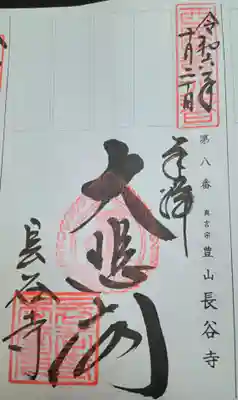 令和六年
十月二十日
奉拝
第八番 真言宗 豊山 長谷寺
大悲閣
長谷寺